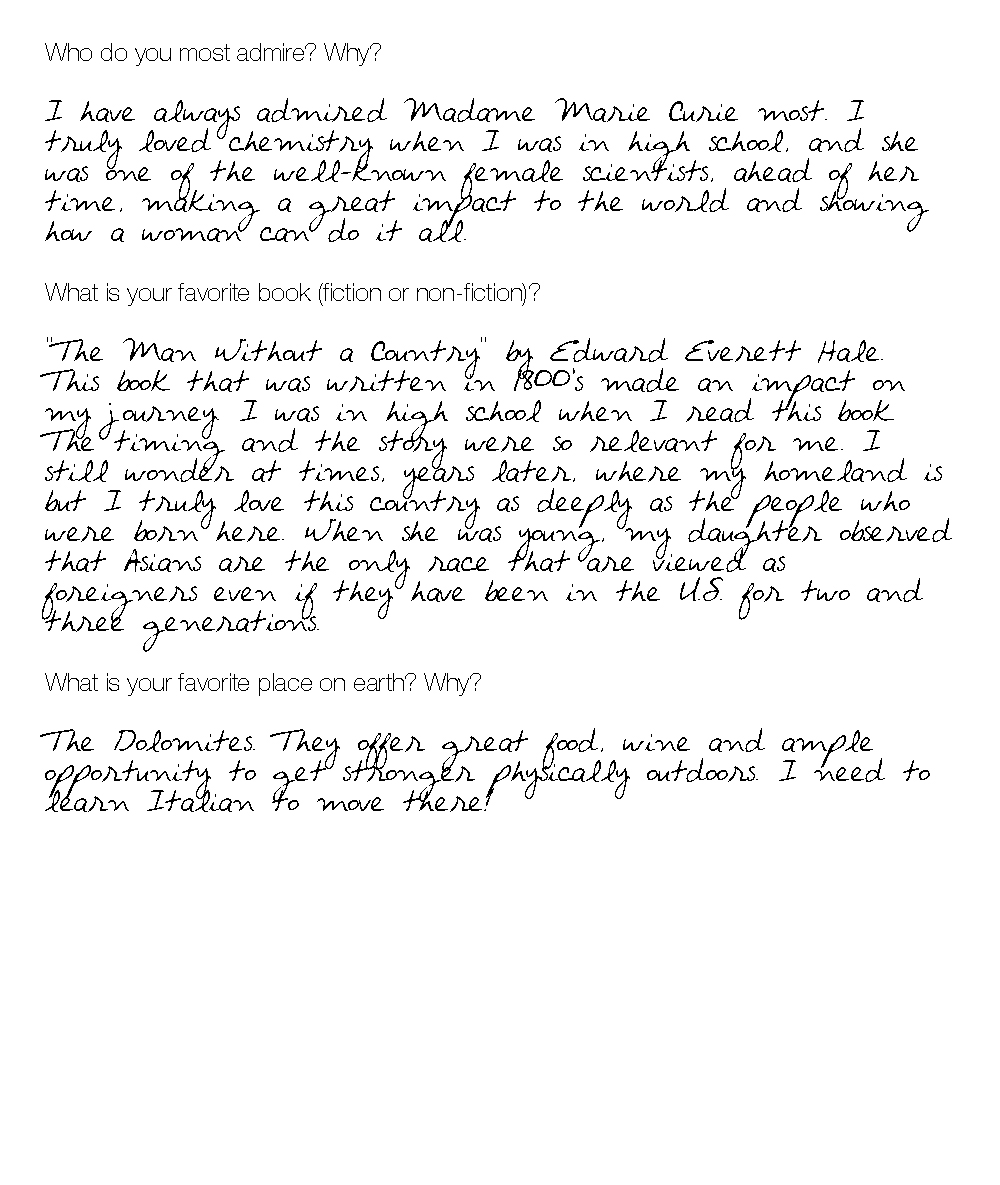 Who do you most admire? Why?
I have always admired Madame Marie Curie most. I
truly loved chemistry when I was in high school, and she
was one of the well-known female scientists, ahead of her
time, making a great impact to the world and showing
how a woman can do it all.
What is your favorite book (fiction or non-fiction)?
"The Man Without a Country" by Edward Everett Hale.
This book that was written in 1800's made an impact on
my journey. I was in high school when I read this book.
The timing and the story were so relevant for me. I
still wonder at times, years later, where my homeland is
but I truly love this country as deeply as the people who
were born here. When she was young, my daughter observed
that Asians are the only race that are viewed as
foreigners even if they have been in the U.S. for two and
three generations.
What is your favorite place on earth? Why?
The Dolomites. They offer great food, wine and ample
opportunity to get stronger physically outdoors. I need to
learn Italian to move there!